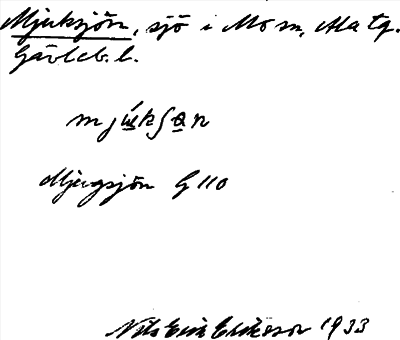 Mjuksjön, sjö i Mo sn, Ala tg.
Gävleb. l.
mjúkʃɵn
Mjugsjön G 110
Nils Erik Eriksson 1933